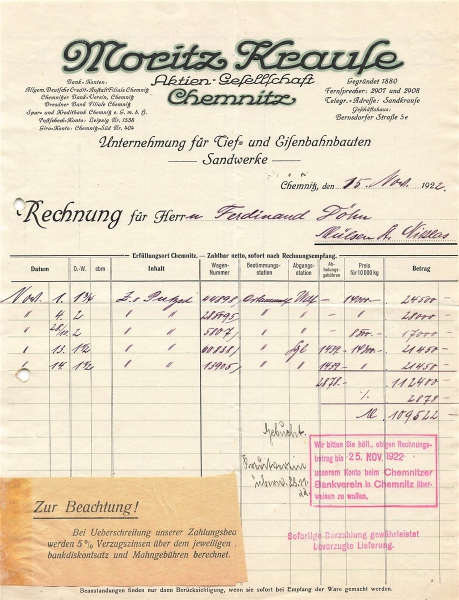 Moritz Krause
Aktien-Gesellschaft
Chemnitz
Bank-Konten:
Allgem. Deutsche Credit-Anstalt Filiale Chemnitz
Chemnitzer Bank-Verein, Chemnitz
Dresdner Bank Filiale Chemnitz
Spar- und Kreditbank Chemnitz e. G. m. b. H.
Postscheck-Konto: Leipzig Nr. 1538
Giro-Konto: Chemnitz-Süd Nr. 404
Gegründet 1880
Fernsprecher: 2907 und 2908
Telegr.-Adresse: Sandkrause
Geschäftshaus:
Bernsdorfer Straße 5e
Unternehmung für Tief- und Eisenbahnbauten
Sandwerke
Chemnitz, den 15. Nov. 1922
Rechnung für Herrn Ferdinand Döhn
Mülsen St. Niklas
Erfüllungsort Chemnitz. — Zahlbar netto, sofort nach Rechnungsempfang.
Datum D.-W. cbm Inhalt Wagen-Nummer Bestimmungs-station Abgangs-station Ab-holungs-gebühren Preis für 10000 kg Betrag
Nov. 1. 24500 -
4. 2 " " " " " 28000 -
2 " " 5807 " " 17000 -
13. " " " 1439 - 21450 -
14. " " " " 1439 - " 21450 -
2878 - 112400 -
% 2878 -
M 109522 -
Gebucht.
Wir bitten Sie höfl., obigen Rechnungs-
betrag bis 25. NOV. 1922
unserem Konto beim Chemnitzer
Bankverein in Chemnitz über-
weisen zu wollen.
Sofortige Barzahlung gewährleistet
bevorzugte Lieferung.
Zur Beachtung!
Bei Ueberschreitung unserer Zahlungsbed
werden 5 % Verzugszinsen über dem jeweiligen
bankdiskontsatz und Mahngebühren berechnet.
Beanstandungen finden nur dann Berücksichtigung, wenn sie sofort bei Empfang der Ware gemacht werden.